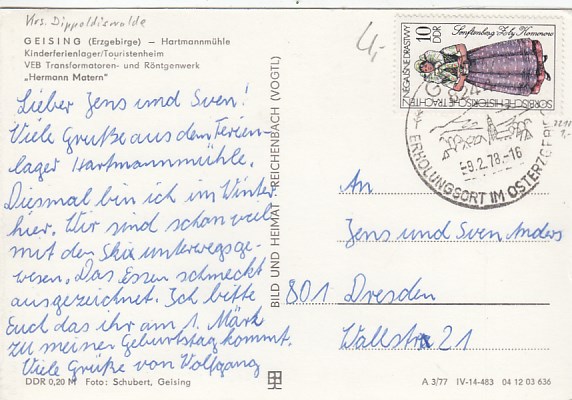 Krs. Dippoldiswalde
GEISING (Erzgebirge) – Hartmannmühle
Kinderferienlager/Touristenheim
VEB Transformatoren- und Röntgenwerk
„Hermann Matern"
4,-
Lieber Jens und Sven!
Viele Grüße aus dem Ferien-
lager Hartmannmühle.
Diesmal bin ich im Winter
hier. Wir sind schon viel
mit den Skix unterwegsge-
wesen. Das Essen schmeckt
ausgezeichnet. Ich bitte
Euch das ihr am 1. Märk
zu meiner Geburtstag kommt.
Viele Grüße von Wolfgang
DDR 0,20 M Foto: Schubert, Geising
BILD UND HEIMAT REICHENBACH (VOGTL)
10 DDR
Senftenberg Zły Komorow
SORBISCHE HISTORISCHE TRACHTEN
-9.2.78-16
ERHOLUNGSORT IM OSTERZGEB
An
Jens und Sven Anders
801 Dresden
Wallstr 21
A 3/77 IV-14-483 04 12 03 636